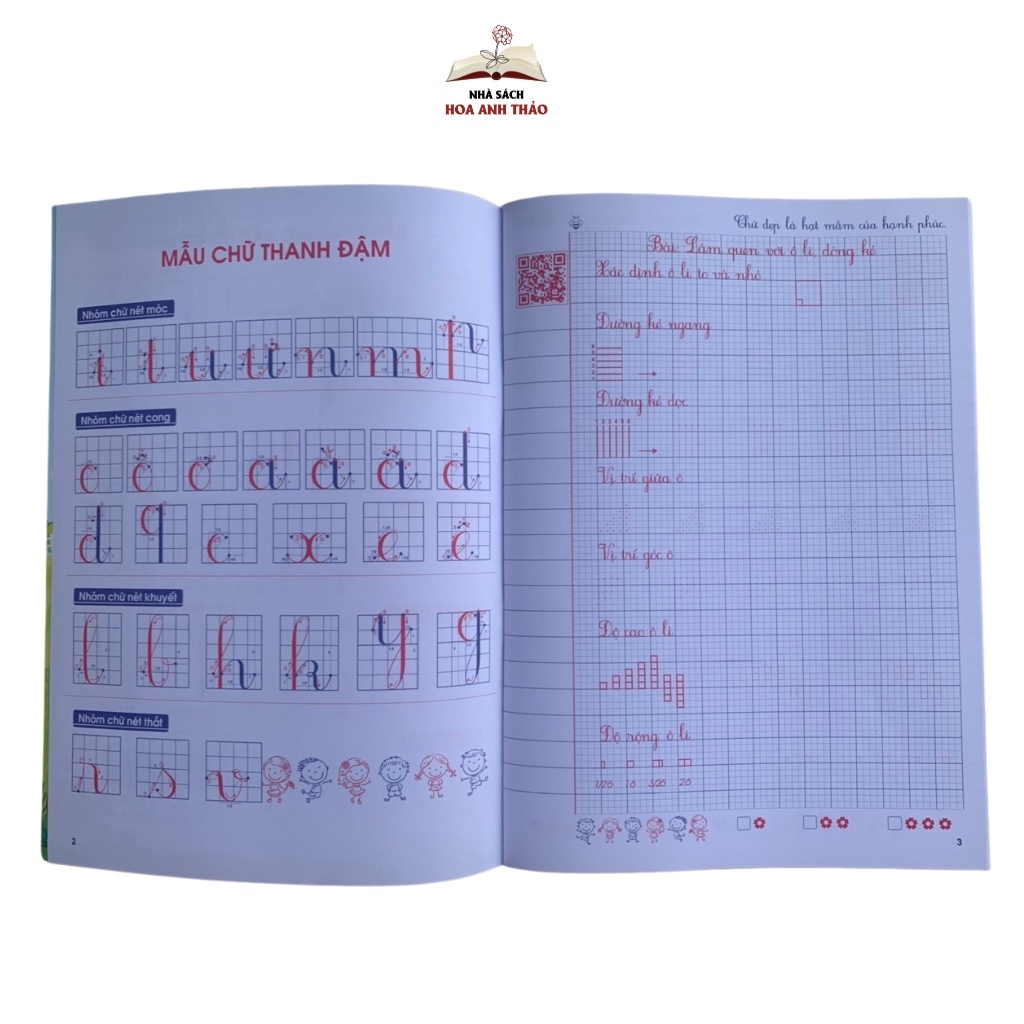 NHÀ SÁCH
HOA ANH THẢO
MẪU CHỮ THANH ĐẬM
Nhóm chữ nét móc
i t u ư n m p
Nhóm chữ nét cong
c ô ơ a ă â d
đ q c x e ê
Nhóm chữ nét khuyết
l b h k y g
Nhóm chữ nét thắt
r s v
2
Chữ đẹp là hạt mầm của hạnh phúc.
Bài: Làm quen với ô li, dòng kẻ
Xác định ô li to và nhỏ
Đường kẻ ngang
Đường kẻ dọc
1 2 3 4 5 6
Vị trí giữa ô
Vị trí góc ô
Độ cao ô li
Độ rộng ô li
1/2ô 1ô 3/2ô 2ô
3